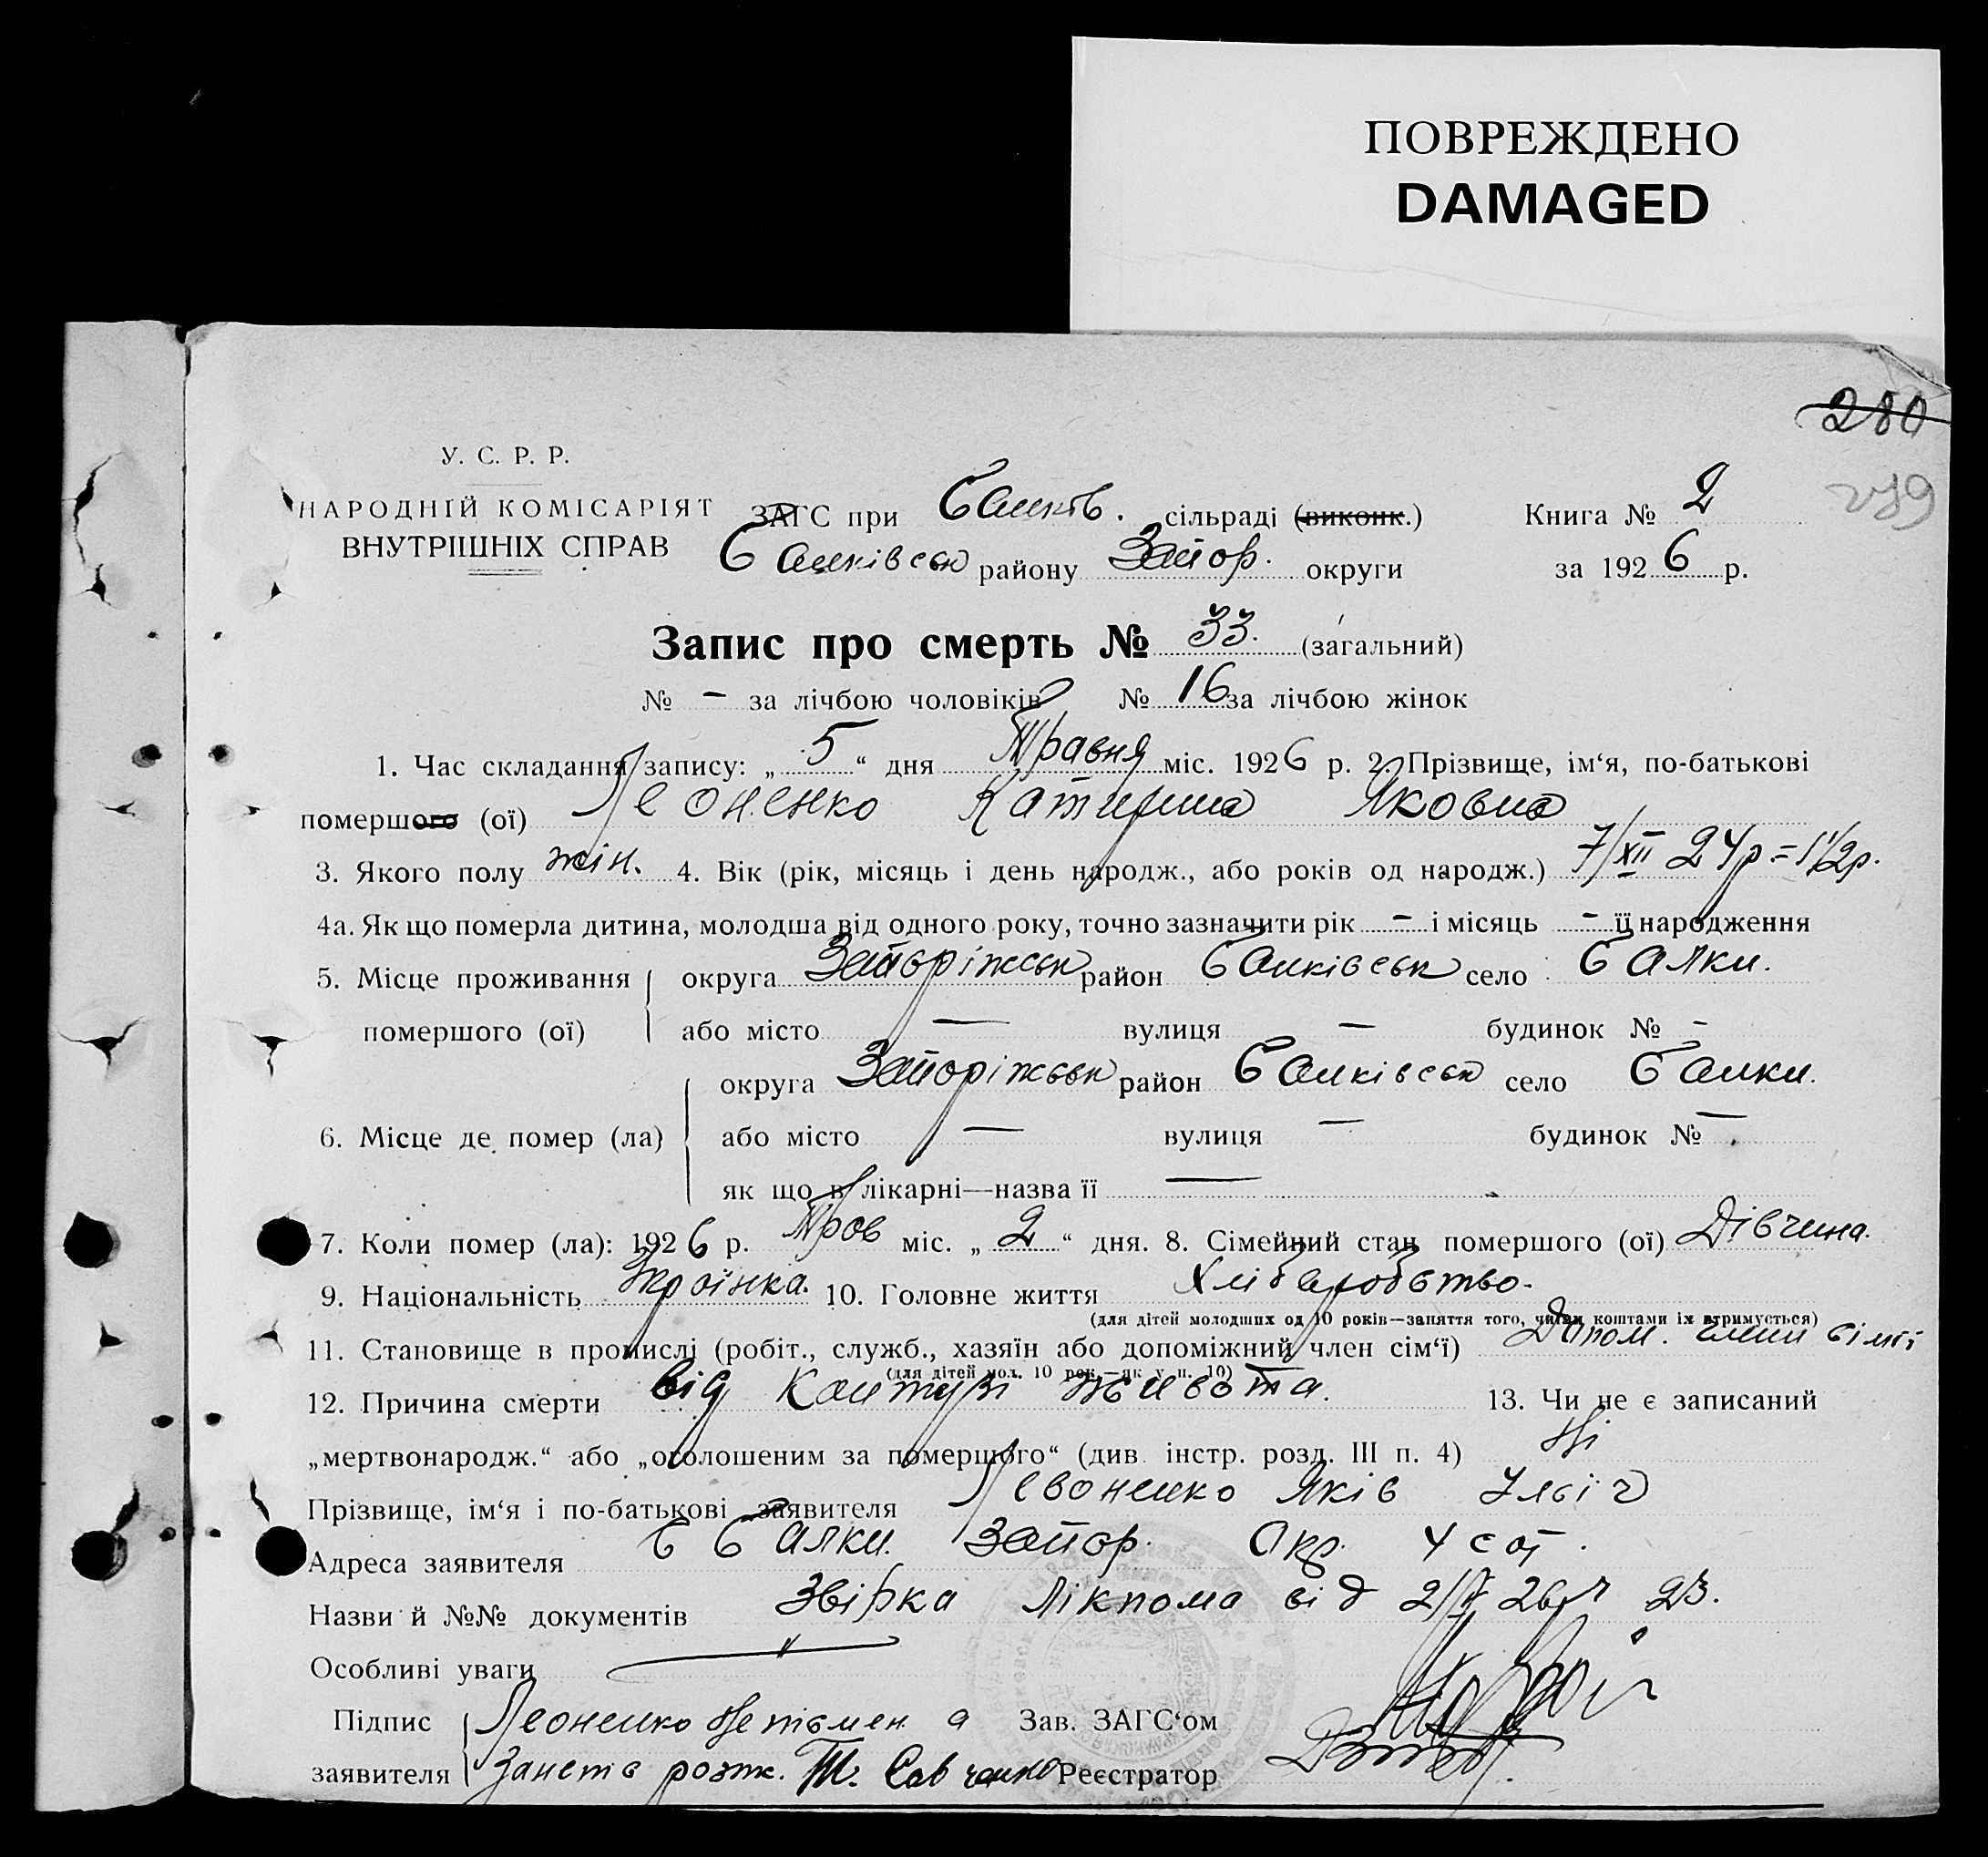 ПОВРЕЖДЕНО
DAMAGED
280
279
У. С. Р. Р.
НАРОДНІЙ КОМІСАРІЯТ
ВНУТРІШНІХ СПРАВ
ЗАГС при Балків. сільраді (виконк.)
Книга № 2
Балківськ району Запор. округи
за 1926 р.
Запис про смерть № 33. (загальний)
№ – за лічбою чоловіків № 16 за лічбою жінок
1. Час складання запису: „5“ дня Травня міс. 1926 р. 2. Прізвище, ім‘я, по-батькові
помершого (ої) Леоненко Катирина Яковна
3. Якого полу жін. 4. Вік (рік, місяць і день народж., або років од народж.) 7/XII 24р = 1 1/2р.
4а. Як що померла дитина, молодша від одного року, точно зазначити рік – і місяць – її народження
5. Місце проживання округа Запоріжськ район Балківськ село Балки.
помершого (ої) або місто — вулиця — будинок № –
округа Запоріжськ район Балківськ село Балки.
6. Місце де помер (ла) або місто — вулиця — будинок № —
як що в лікарні—назва її —
7. Коли помер (ла): 1926 р. Трав міс. „2“ дня. 8. Сімейний стан помершого (ої) Дівчина.
9. Національність Украінка. 10. Головне життя Хліборобство.
(для дітей молодших од 10 років—заняття того, чиїми коштами їх втримується)
11. Становище в промислі (робіт., служб., хазяїн або допоміжний член сім‘ї) Допом. член сімї
(для дітей мол. 10 рок.—як у п. 10)
12. Причина смерти від живота. 13. Чи не є записаний
„мертвонародж.“ або „оголошеним за померщого“ (див. інстр. розд. III п. 4) Ні
Прізвище, ім‘я і по-батькові заявителя Левоненко Яків Ільіч
Адреса заявителя с Балки. Запор. Окр. 4 сот.
Назви й №№ документів Звірка Лікпома від 2/V 26р ч 23.
Особливі уваги
Підпис Леоненко Неписмен а Зав. ЗАГС‘ом
заявителя розп. Т. Савченко Реєстратор